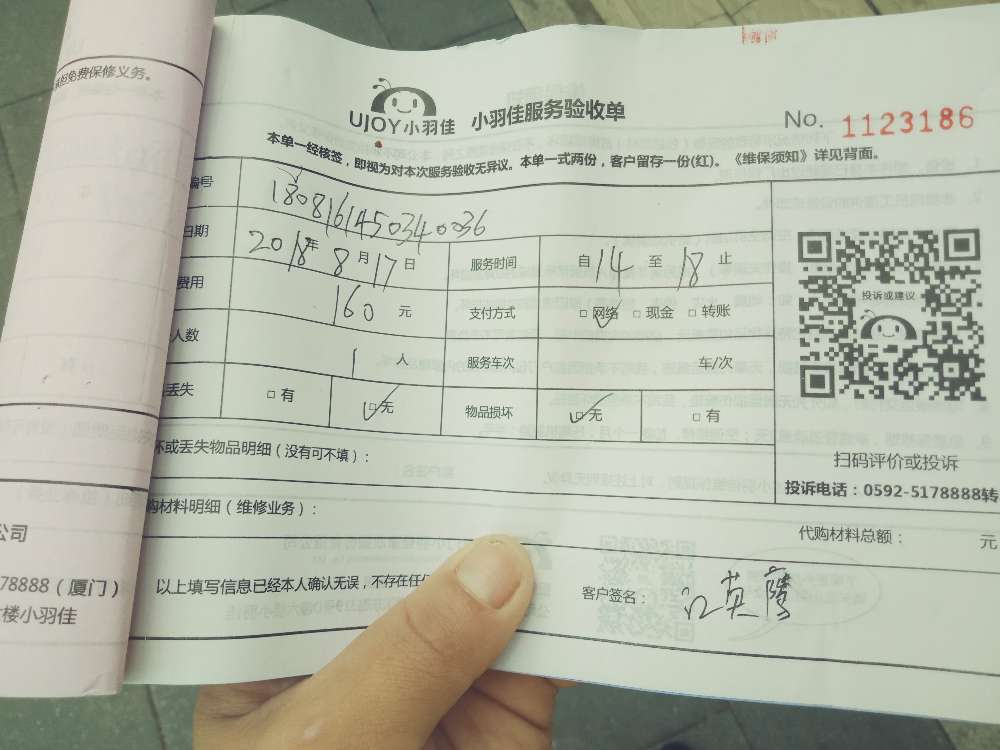 承担免费保修义务。
UJOY小羽佳 小羽佳服务验收单
No. 1123186
本单一经核签，即视为对本次服务验收无异议。本单一式两份，客户留存一份(红)。《维保须知》详见背面。
编号 1808161450340036
日期 2018年 8月17日 服务时间 自14至18止
费用 160元 支付方式 □网络 □现金 □转账
人数 1人 服务车次 车/次
丢失 □有 □无 物品损坏 □无 □有
投诉或建议
坏或丢失物品明细（没有可不填）：
扫码评价或投诉
投诉电话：0592-5178888转
购材料明细（维修业务）：
代购材料总额： 元
以上填写信息已经本人确认无误，不存在任
客户签名： 江英腾
公司
78888（厦门）
楼小羽佳